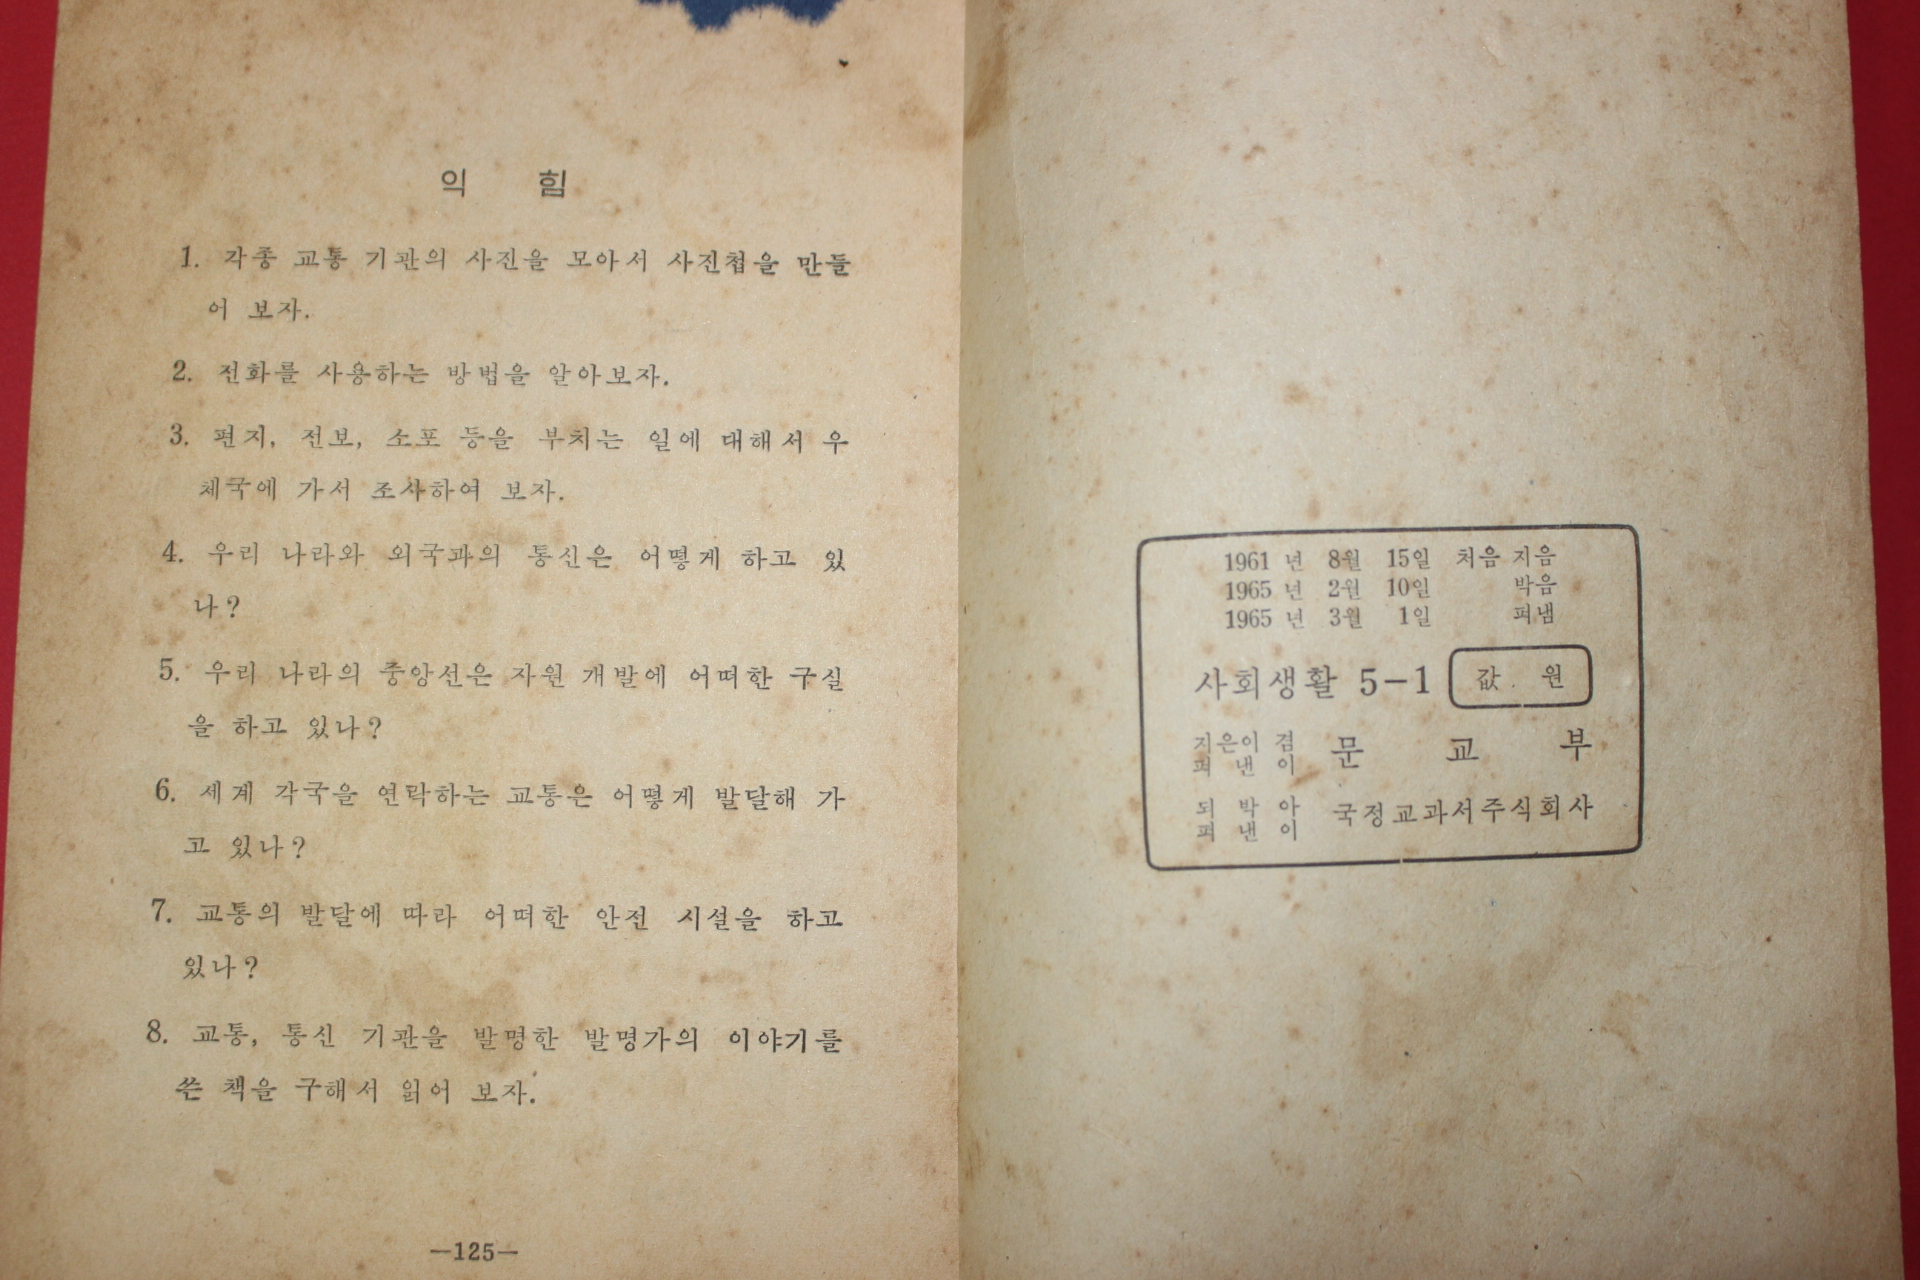 익 힘
1. 각종 교통 기관의 사진을 모아서 사진첩을 만들
어 보자.
2. 전화를 사용하는 방법을 알아보자.
3. 편지, 전보, 소포 등을 부치는 일에 대해서 우
체국에 가서 조사하여 보자.
4. 우리 나라와 외국과의 통신은 어떻게 하고 있
나?
5. 우리 나라의 중앙선은 자원 개발에 어떠한 구실
을 하고 있나?
6. 세계 각국을 연락하는 교통은 어떻게 발달해 가
고 있나?
7. 교통의 발달에 따라 어떠한 안전 시설을 하고
있나?
8. 교통, 통신 기관을 발명한 발명가의 이야기를
쓴 책을 구해서 읽어 보자.
—125—
1961 년 8월 15일 처음 지음
1965 년 2월 10일 박음
1965 년 3월 1일 펴냄
사회생활 5-1 값. 원
지은이 겸
펴 낸 이 문 교 부
되 박 아
펴 낸 이 국정교과서주식회사